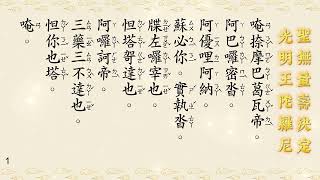 聖無量壽決定
光明王陀羅尼
唵捺摩巴葛瓦帝。
阿巴囉密沓。
阿優哩阿納。
蘇必你。實執沓。
牒左囉宰也。
怛塔哿達也。
阿囉訶帝。
三藥三不達也。
怛你也塔。
唵。
1